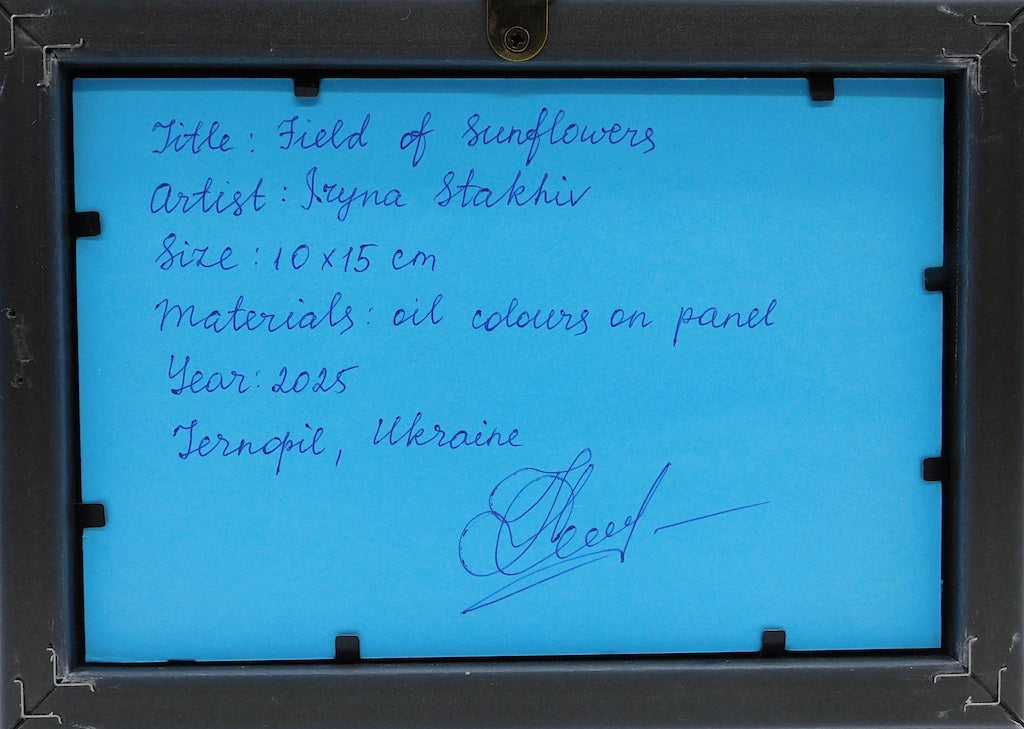 Title: Field of Sunflowers
Artist: Iryna Stakhiv
Size: 10x15 cm
Materials: oil colours on panel
Year: 2025
Ternopil, Ukraine